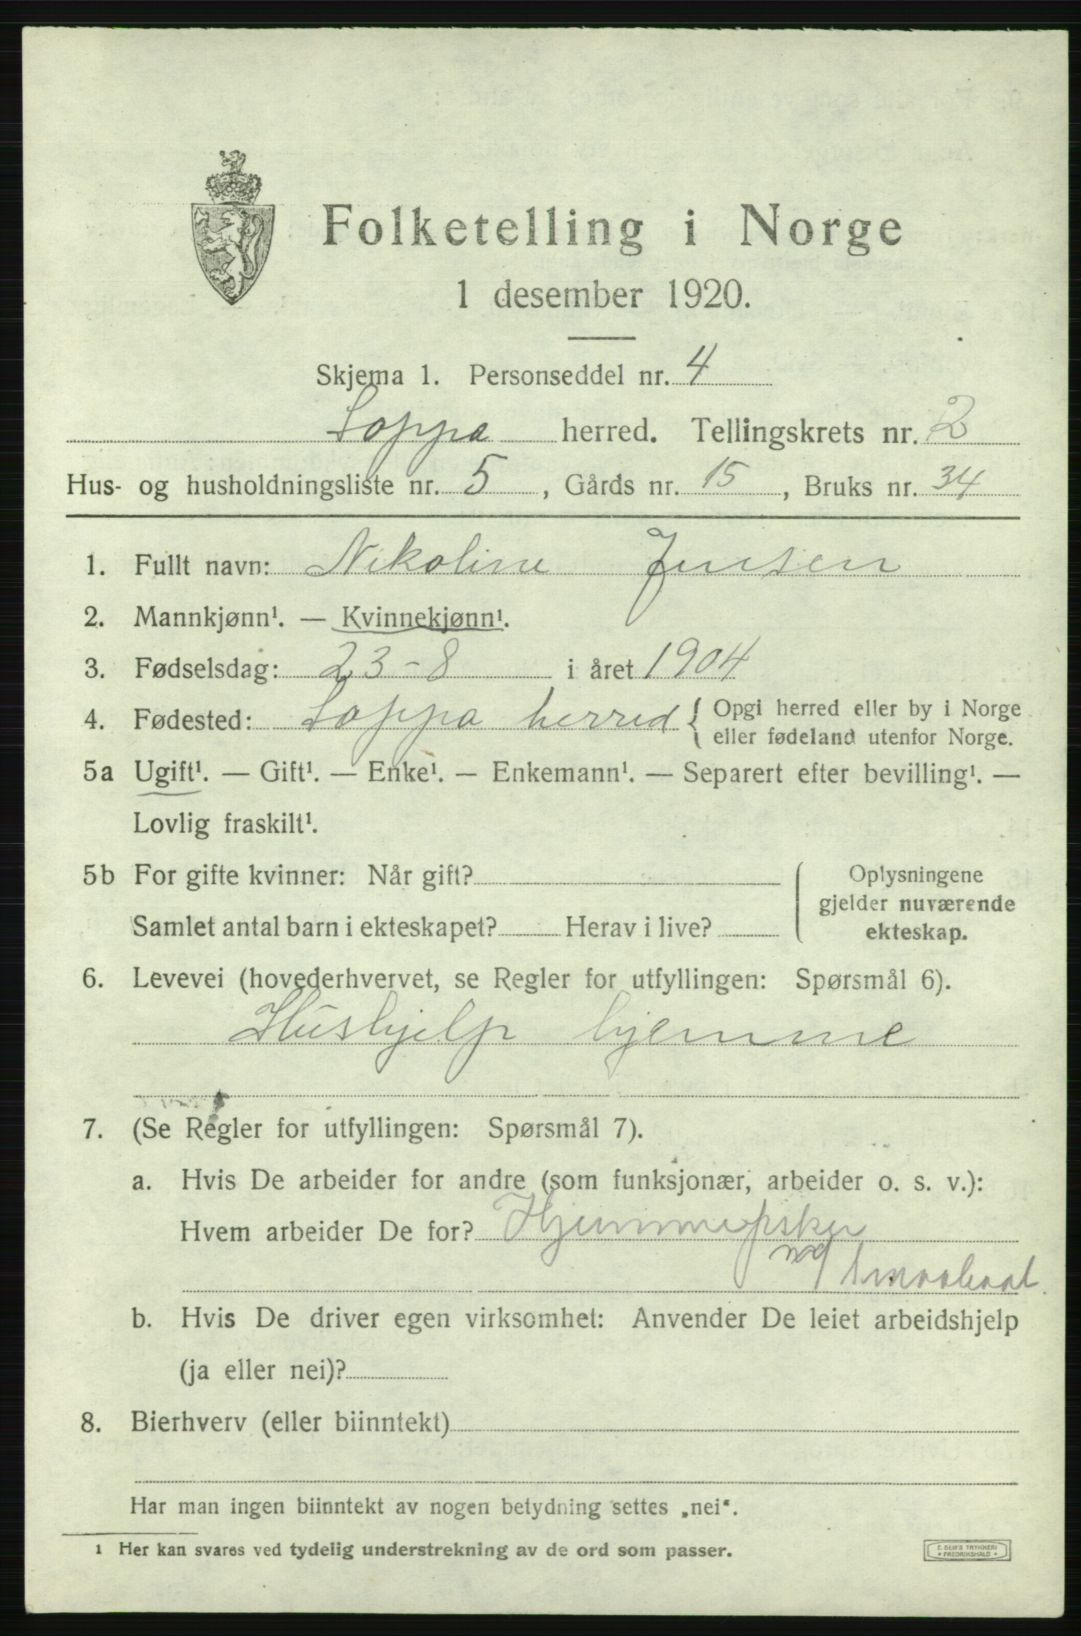 Folketelling i Norge
1 desember 1920.
Skjema 1. Personseddel nr. 4
Loppa herred. Tellingskrets nr. 2
Hus- og husholdningsliste nr. 5, Gårds nr. 15, Bruks nr. 34
1. Fullt navn: Nikoline Jensen
2. Mannkjønn¹. — Kvinnekjønn¹.
3. Fødselsdag: 23-8 i året 1904
4. Fødested: Loppa herred { Opgi herred eller by i Norge
eller fødeland utenfor Norge.
5a Ugift¹. — Gift¹. — Enke¹. — Enkemann¹. — Separert efter bevilling¹. —
Lovlig fraskilt¹.
5b For gifte kvinner: Når gift?
Samlet antal barn i ekteskapet? Herav i live?
Oplysningene
gjelder nuværende
ekteskap.
6. Levevei (hovederhvervet, se Regler for utfyllingen: Spørsmål 6).
Hushjelp hjemme
7. (Se Regler for utfyllingen: Spørsmål 7).
a. Hvis De arbeider for andre (som funksjonær, arbeider o. s. v.):
Hvem arbeider De for?
b. Hvis De driver egen virksomhet: Anvender De leiet arbeidshjelp
(ja eller nei)?
8. Bierhverv (eller biinntekt)
Har man ingen biinntekt av nogen betydning settes „nei".
¹ Her kan svares ved tydelig understrekning av de ord som passer.